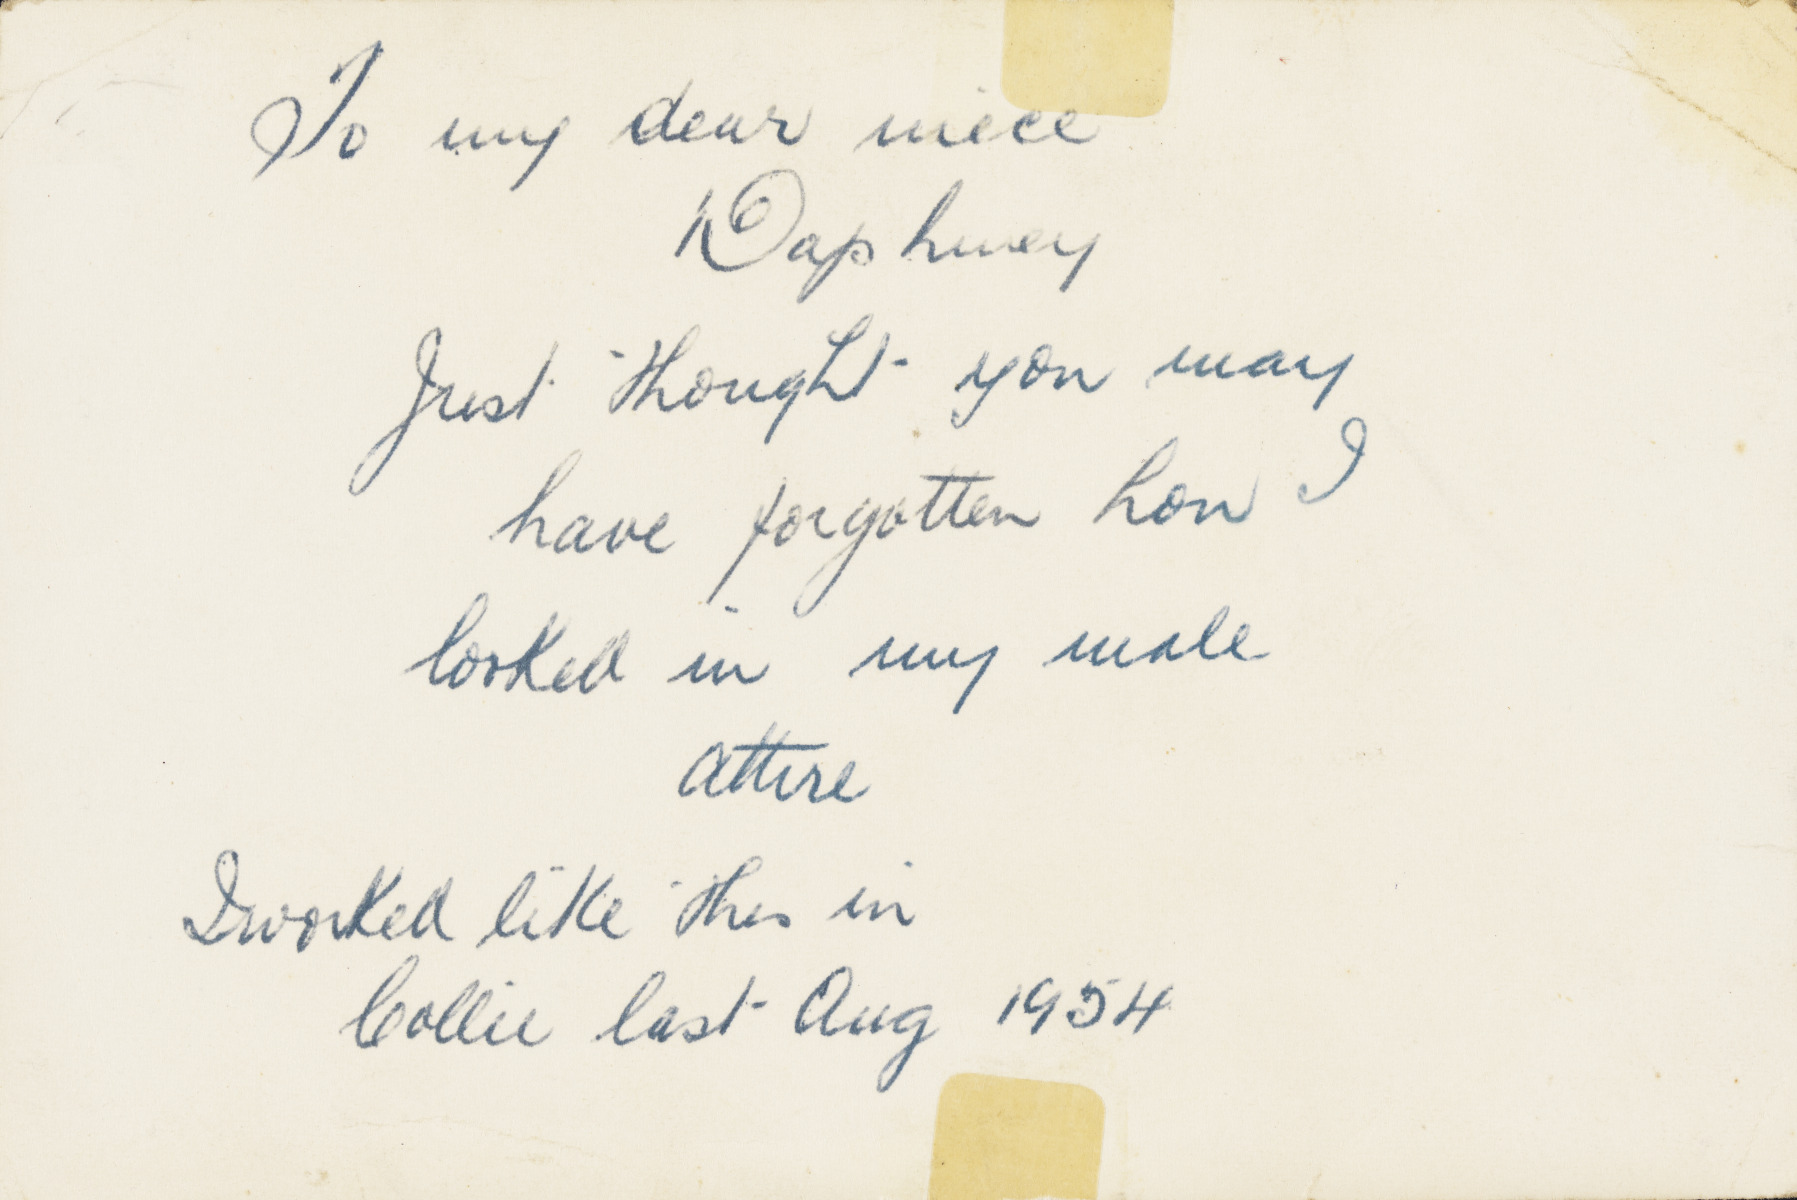 To my dear niece
Daphney
Just thought you may
have forgotten how I
looked in my male
attire
I worked like this in
Collie last Aug 1954